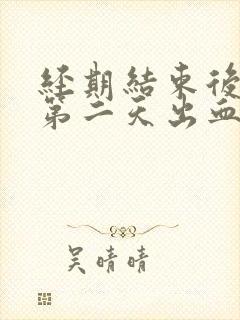 經期結束後
第二天出血
吴晴晴